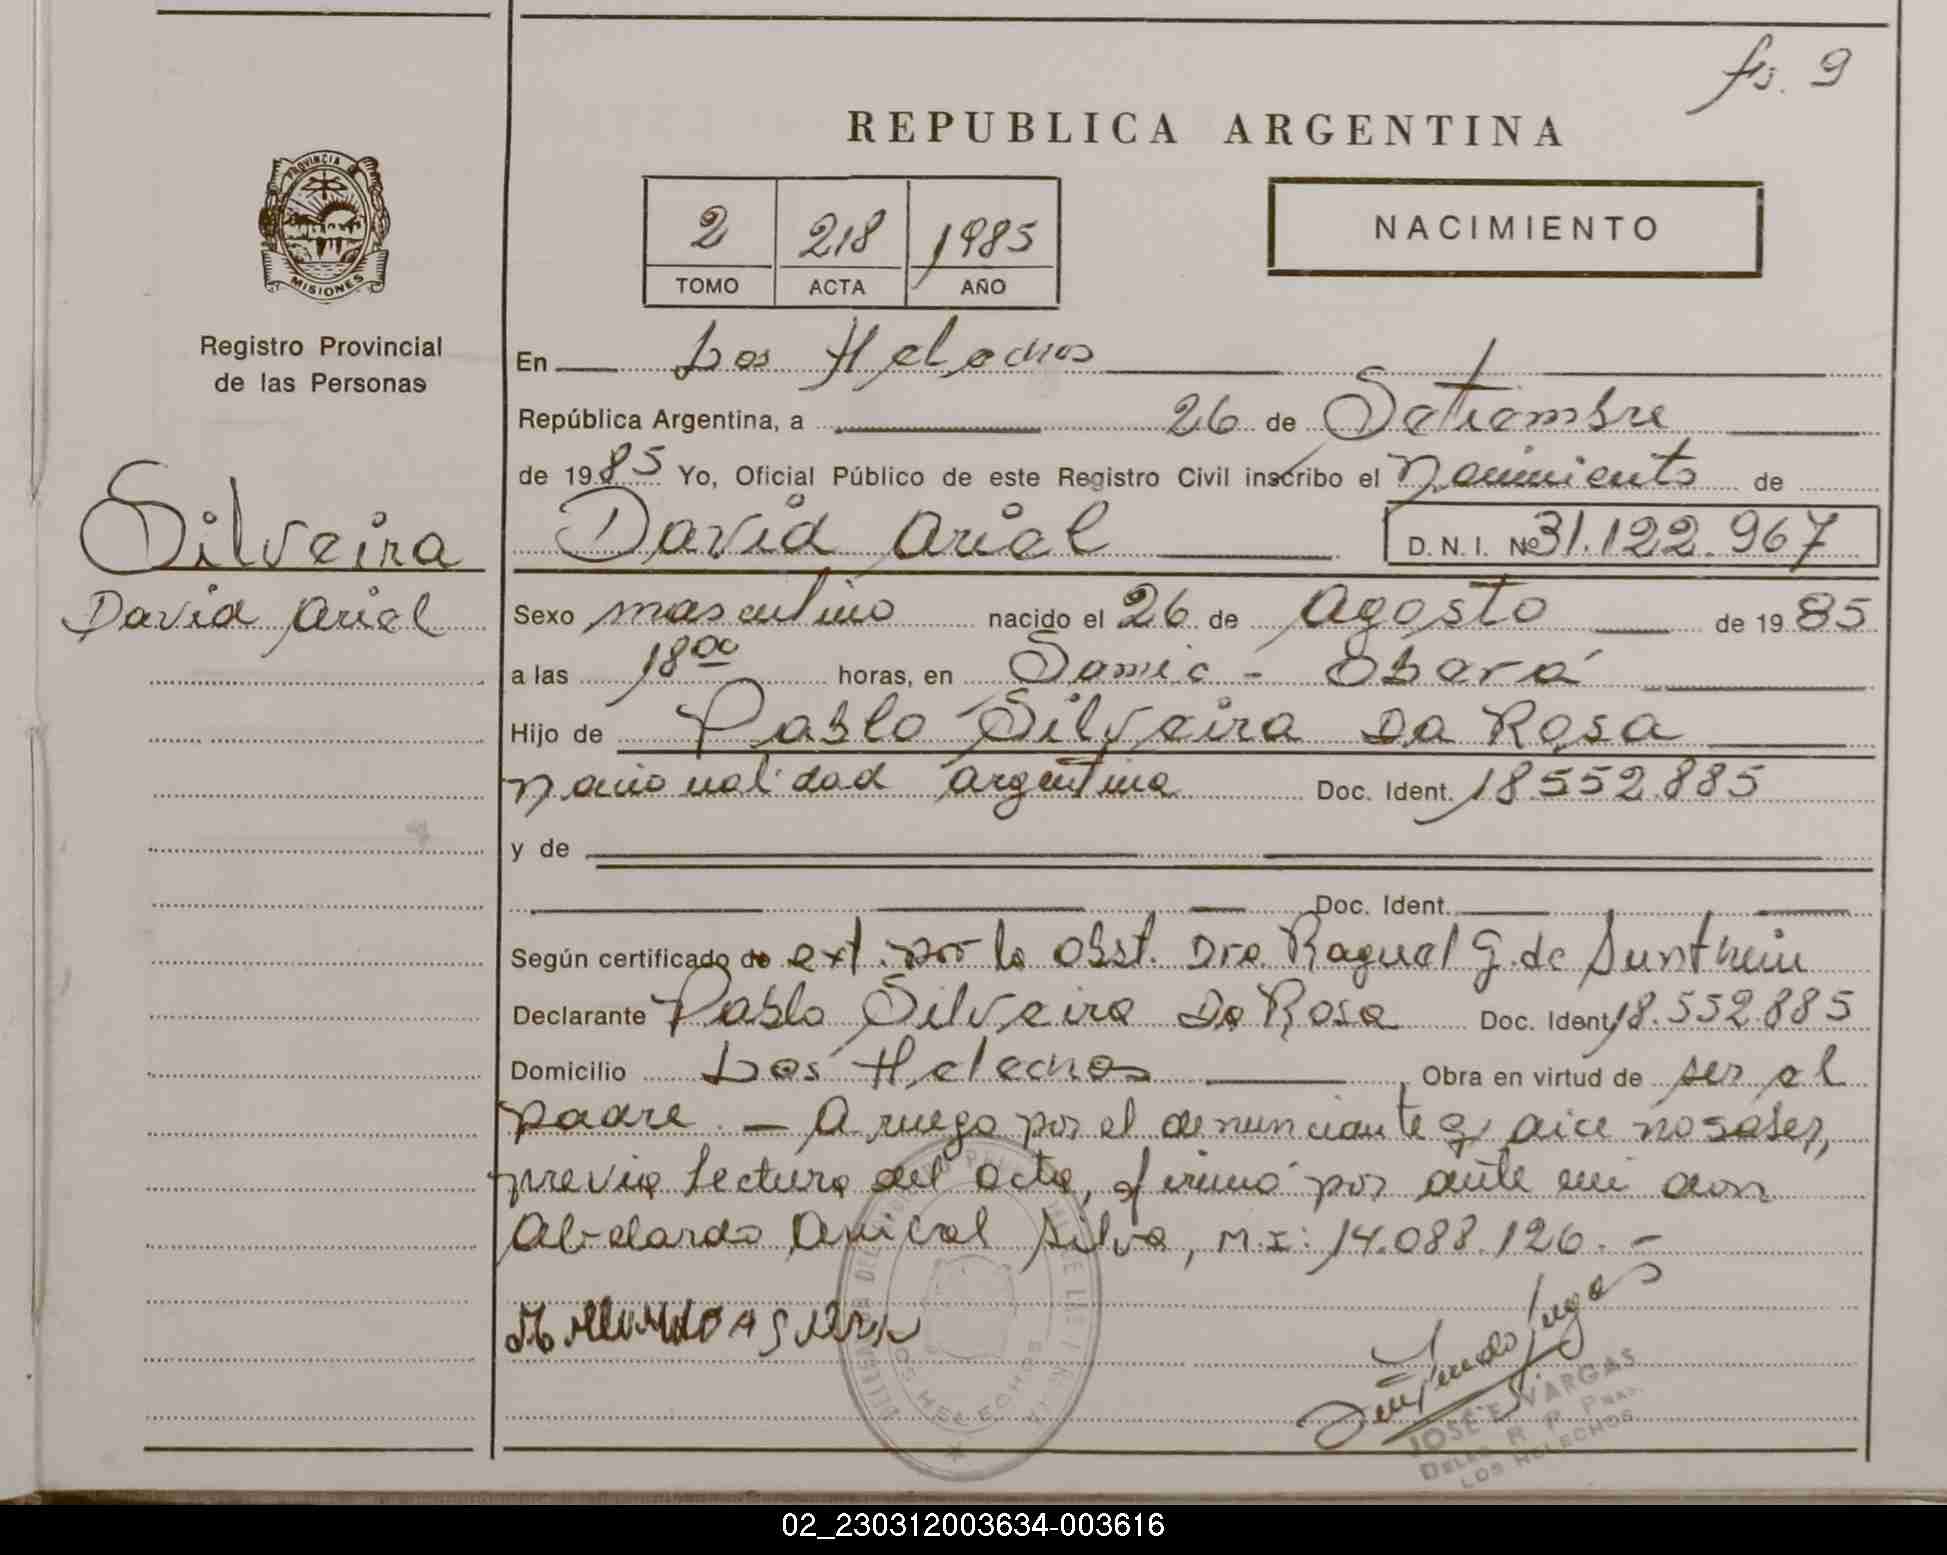 fs. 9
REPUBLICA ARGENTINA
PROVINCIA
MISIONES
2 218 1985
TOMO ACTA AÑO
NACIMIENTO
Registro Provincial
de las Personas
Silveira
David Ariel
En Los Helechos
República Argentina, a 26 de Setiembre
de 1985 Yo, Oficial Público de este Registro Civil inscribo el Nacimiento de
David Ariel D. N. I. Nº 31.122.967
Sexo masculino nacido el 26 de Agosto de 1985
a las 18 00 horas, en Samic - Oberá
Hijo de Pablo Silveira Da Rosa
nacionalidad argentina Doc. Ident. 18.552.885
y de
Doc. Ident.
Según certificado de ext. por la Obst. Dra. Raquel G. de Sunthein
Declarante Pablo Silveira Da Rosa Doc. Ident. 18.552.885
Domicilio Los Helechos, Obra en virtud de ser el
padre. — A ruego por el denunciante q' dice no saber,
previa lectura del acta, firmó por ante mi don
Abelardo Anibal Silva, M.I: 14.088.126. -
LOS HELECHOS
JOSE E. VARGAS
LOS HELECHOS
02_230312003634-003616